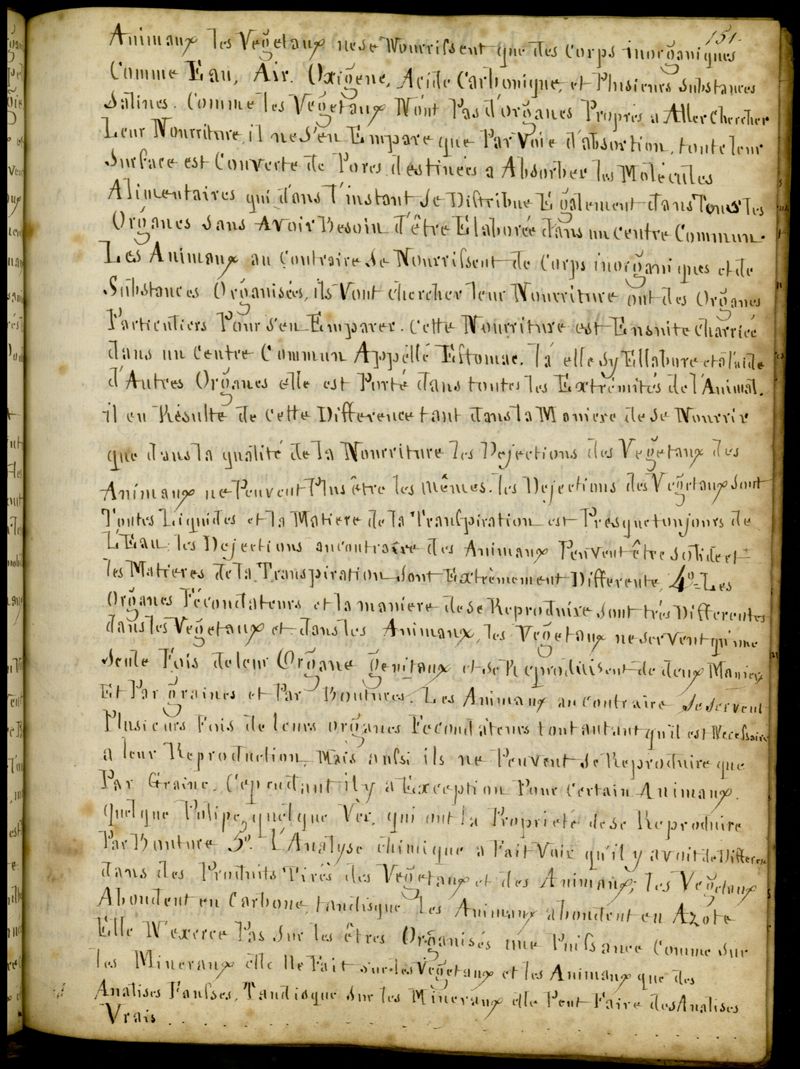 151.
Animaux les Vegetaux ne se Nourrissent que des Corps inorganiques
Comme Eau, Air, Oxigene, Acide Carbonique, et Plusieurs Substances
Salines. Comme les Vegetaux N'ont Pas d'organes Propres a Aller Chercher
Leur Nourriture, il ne S'en Empare que Par Voie d'absortion, toute leur
Surface est Converte de Pores destinées a Absorber les Molécules
Alimentaires qui dans l'instant Se Distribue Egalement dans Tous les
Organes Sans Avoir Besoin d'être Elaborée dans un Centre Commun.
Les Animaux au Contraire Se Nourrissent de Corps inorganiques et de
Substances Organisées, ils Vont chercher leur Nourriture ont des Organes
Particuliers Pour S'en Emparer. Cette Nourriture est Ensuite Charriée
dans un Centre Commun Appellé Estomac, là elle S'y Ellabore et à l'aide
d'Autres Organes elle est Porté dans toutes les Extrémités de l'Animal.
il en Résulte de cette Difference tant dans la Maniere de Se Nourrir
que dans la qualité de la Nourriture les Dejections des Vegetaux des
Animaux ne Peuvent Plus être les mêmes. les Dejections des Vegetaux Sont
Toutes Liquides et la Matiere de la Transpiration est Presque toujours de
L'Eau, les Dejections au contraire des Animaux Peuvent être Solide et
les Matieres de la Transpiration Sont Extrêmement Differente. 4º Les
Organes Fécondateurs et la maniere de Se Reproduire Sont très Differentes
dans les Vegetaux et dans les Animaux, les Vegetaux ne Servent qu'une
Seule Fois de leur Organe genitaux et Se Reproduisent de deux Manieres
Et Par graines et Par Boutures. Les Animaux au contraire Se Servent
Plusieurs Fois de leurs organes Fecondateurs tout autant qu'il est Necessaire
a leur Reproduction, Mais aussi ils ne Peuvent Se Reproduire que
Par Graine. Cependant il y a Exception Pour Certain Animaux.
Quelque Polipe, quelque Ver, qui ont la Propriete de Se Reproduire
Par Bouture 5º. L'Analyse chimique a Fait Voir qu'il y avoit de Differences
dans des Produits Tirés des Vegetaux et des Animaux; les Vegetaux
Abondent en Carbone, tandisque les Animaux abondent en Azote
Elle N'exerce Pas Sur les êtres Organisés une Puissance Comme Sur
les Mineraux elle Ne Fait Sur les Vegetaux et les Animaux que des
Analises Fausses, Tandisque Sur les Mineraux elle Peut Faire des Analises
Vrais